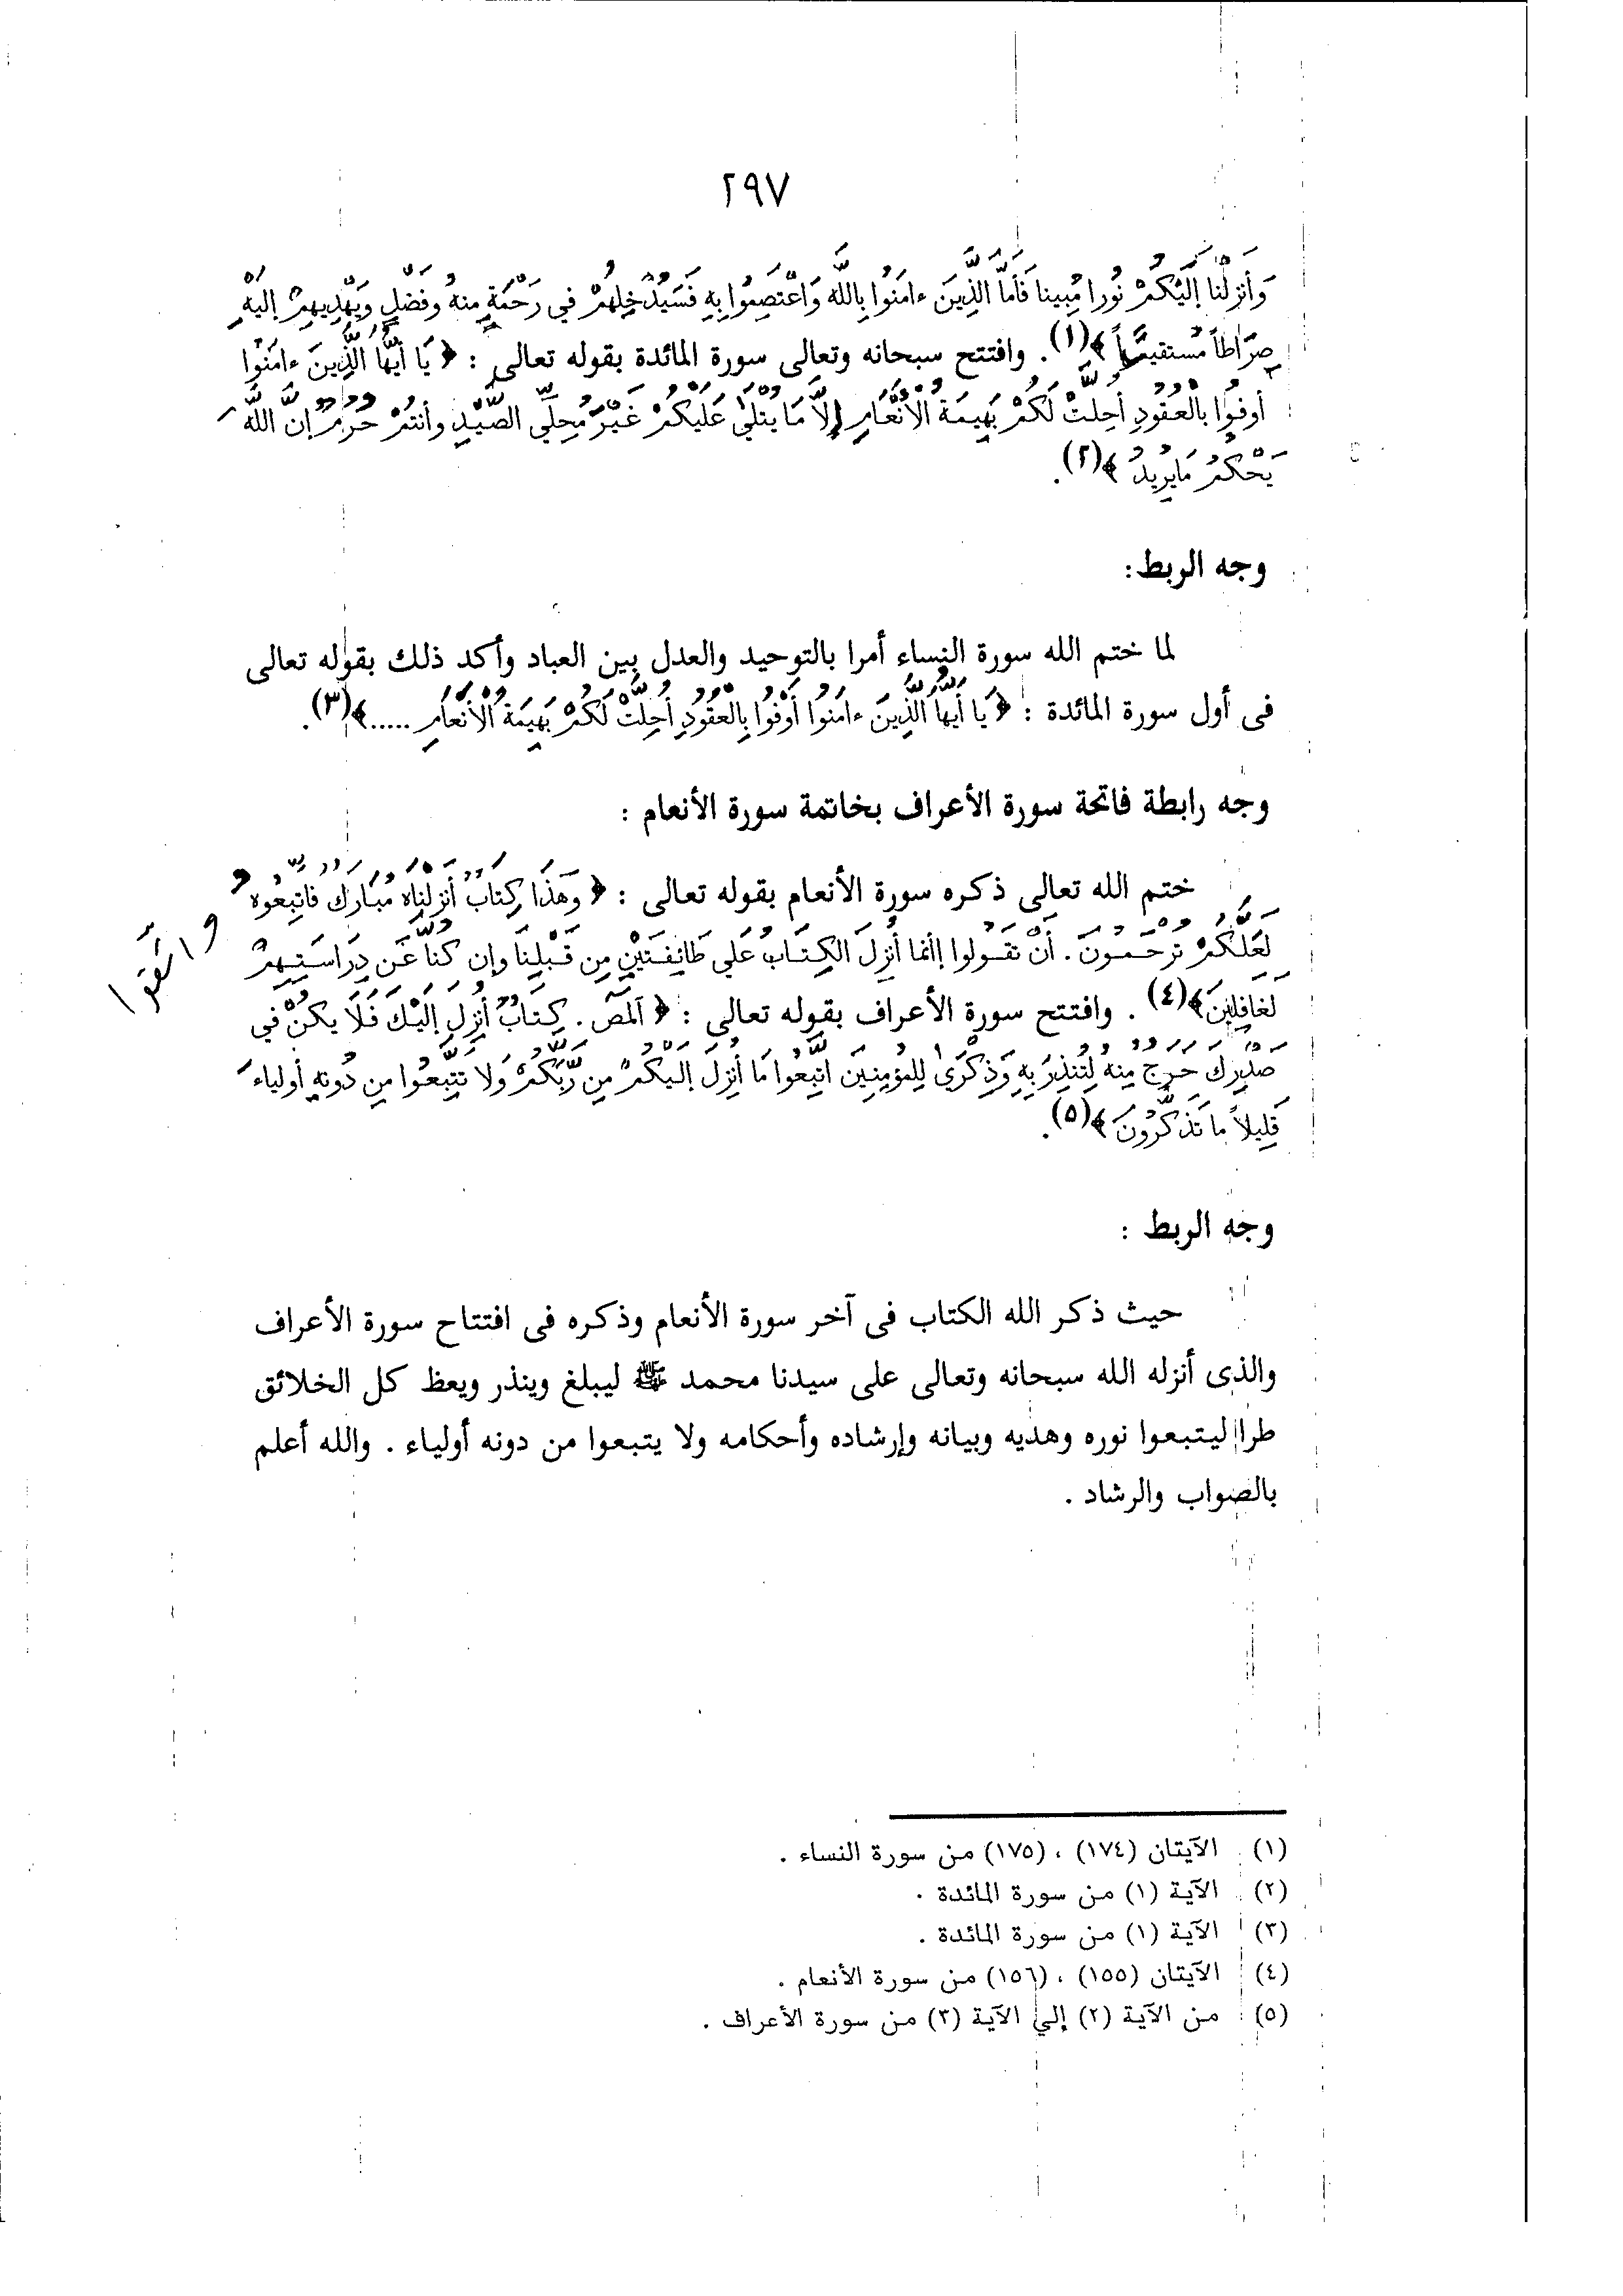 ٢٩٧
وَأَنزَلْنَا إِلَيْكُمْ نُورا مُبِينا فَأَمَّا الَّذِينَ ءامَنُوا بِاللَّهِ وَاعْتَصِمُوا بِهِ فَسَيُدْخِلُهُمْ فِي رَحْمَةٍ مِنهُ وَفَضْلٍ وَيَهْدِيهِمْ إِلَيْهِ
صِرَاطاً مُسْتَقِيماً ﴾(١). وافتتح سبحانه وتعالى سورة المائدة بقوله تعالى : ﴿ يَا أَيُّهَا الَّذِينَ ءامَنُوا
أَوفُوا بِالْعُقُودِ أُحِلَّتْ لَكُمْ بَهِيمَةُ الْأَنْعَامِ إِلاَّ مَا يُتْلَىٰ عَلَيْكُمْ غَيْرَ مُحِلِّي الصَّيْدِ وأَنتُمْ حُرُمٌ إِنَّ اللَّهَ
يَحْكُمُ مَايُرِيدُ ﴾(٢).
وجه الربط:
لما ختم الله سورة النساء أمرا بالتوحيد والعدل بين العباد وأكد ذلك بقوله تعالى
فى أول سورة المائدة : ﴿ يَا أَيُّهَا الَّذِينَ ءامَنُوا أَوْفُوا بِالْعُقُودِ أُحِلَّتْ لَكُمْ بَهِيمَةُ الْأَنْعَامِ .....﴾(٣).
وجه رابطة فاتحة سورة الأعراف بخاتمة سورة الأنعام :
ختم الله تعالى ذكره سورة الأنعام بقوله تعالى : ﴿ وَهَذَا كِتَابٌ أَنزَلْنَاهُ مُبَارَكٌ فَاتَّبِعُوه
واتَّقوا
لَعَلَّكُمْ تُرْحَمُونَ . أَنْ تَقُولُوا إِنَّمَا أُنْزِلَ الكِتَابُ عَلَى طَائِفَتَيْنِ مِن قَبْلِنَا وإِن كُنَّا عَن دِرَاسَتِهِمْ
لَغَافِلِينَ﴾(٤) . وافتتح سورة الأعراف بقوله تعالى : ﴿ آلمّص . كِتَابٌ أُنزِلَ إِلَيْكَ فَلَا يَكُنْ فِي
صَدْرِكَ حَرَجٌ مِنْهُ لِتُنذِرَ بِهِ وَذِكْرَىٰ لِلمُؤمِنِينَ اتَّبِعُوا مَا أُنزِلَ إِلَيْكُمْ مِن رَّبِّكُمْ وَلَا تَتَّبِعُوا مِن دُونِهِ أَولِياءَ
قَلِيلاً مَا تَذَكَّرُونَ ﴾(٥).
وجه الربط :
حيث ذكر الله الكتاب فى آخر سورة الأنعام وذكره فى افتتاح سورة الأعراف
والذى أنزله الله سبحانه وتعالى على سيدنا محمد ﷺ ليبلغ وينذر ويعظ كل الخلائق
طرا ليتبعوا نوره وهديه وبيانه وإرشاده وأحكامه ولا يتبعوا من دونه أولياء . والله أعلم
بالصواب والرشاد .
(١) الآيتان (١٧٤) ، (١٧٥) من سورة النساء .
(٢) الآية (١) من سورة المائدة .
(٣) الآية (١) من سورة المائدة .
(٤) الآيتان (١٥٥) ، (١٥٦) من سورة الأنعام .
(٥) من الآية (٢) إلى الآية (٣) من سورة الأعراف .